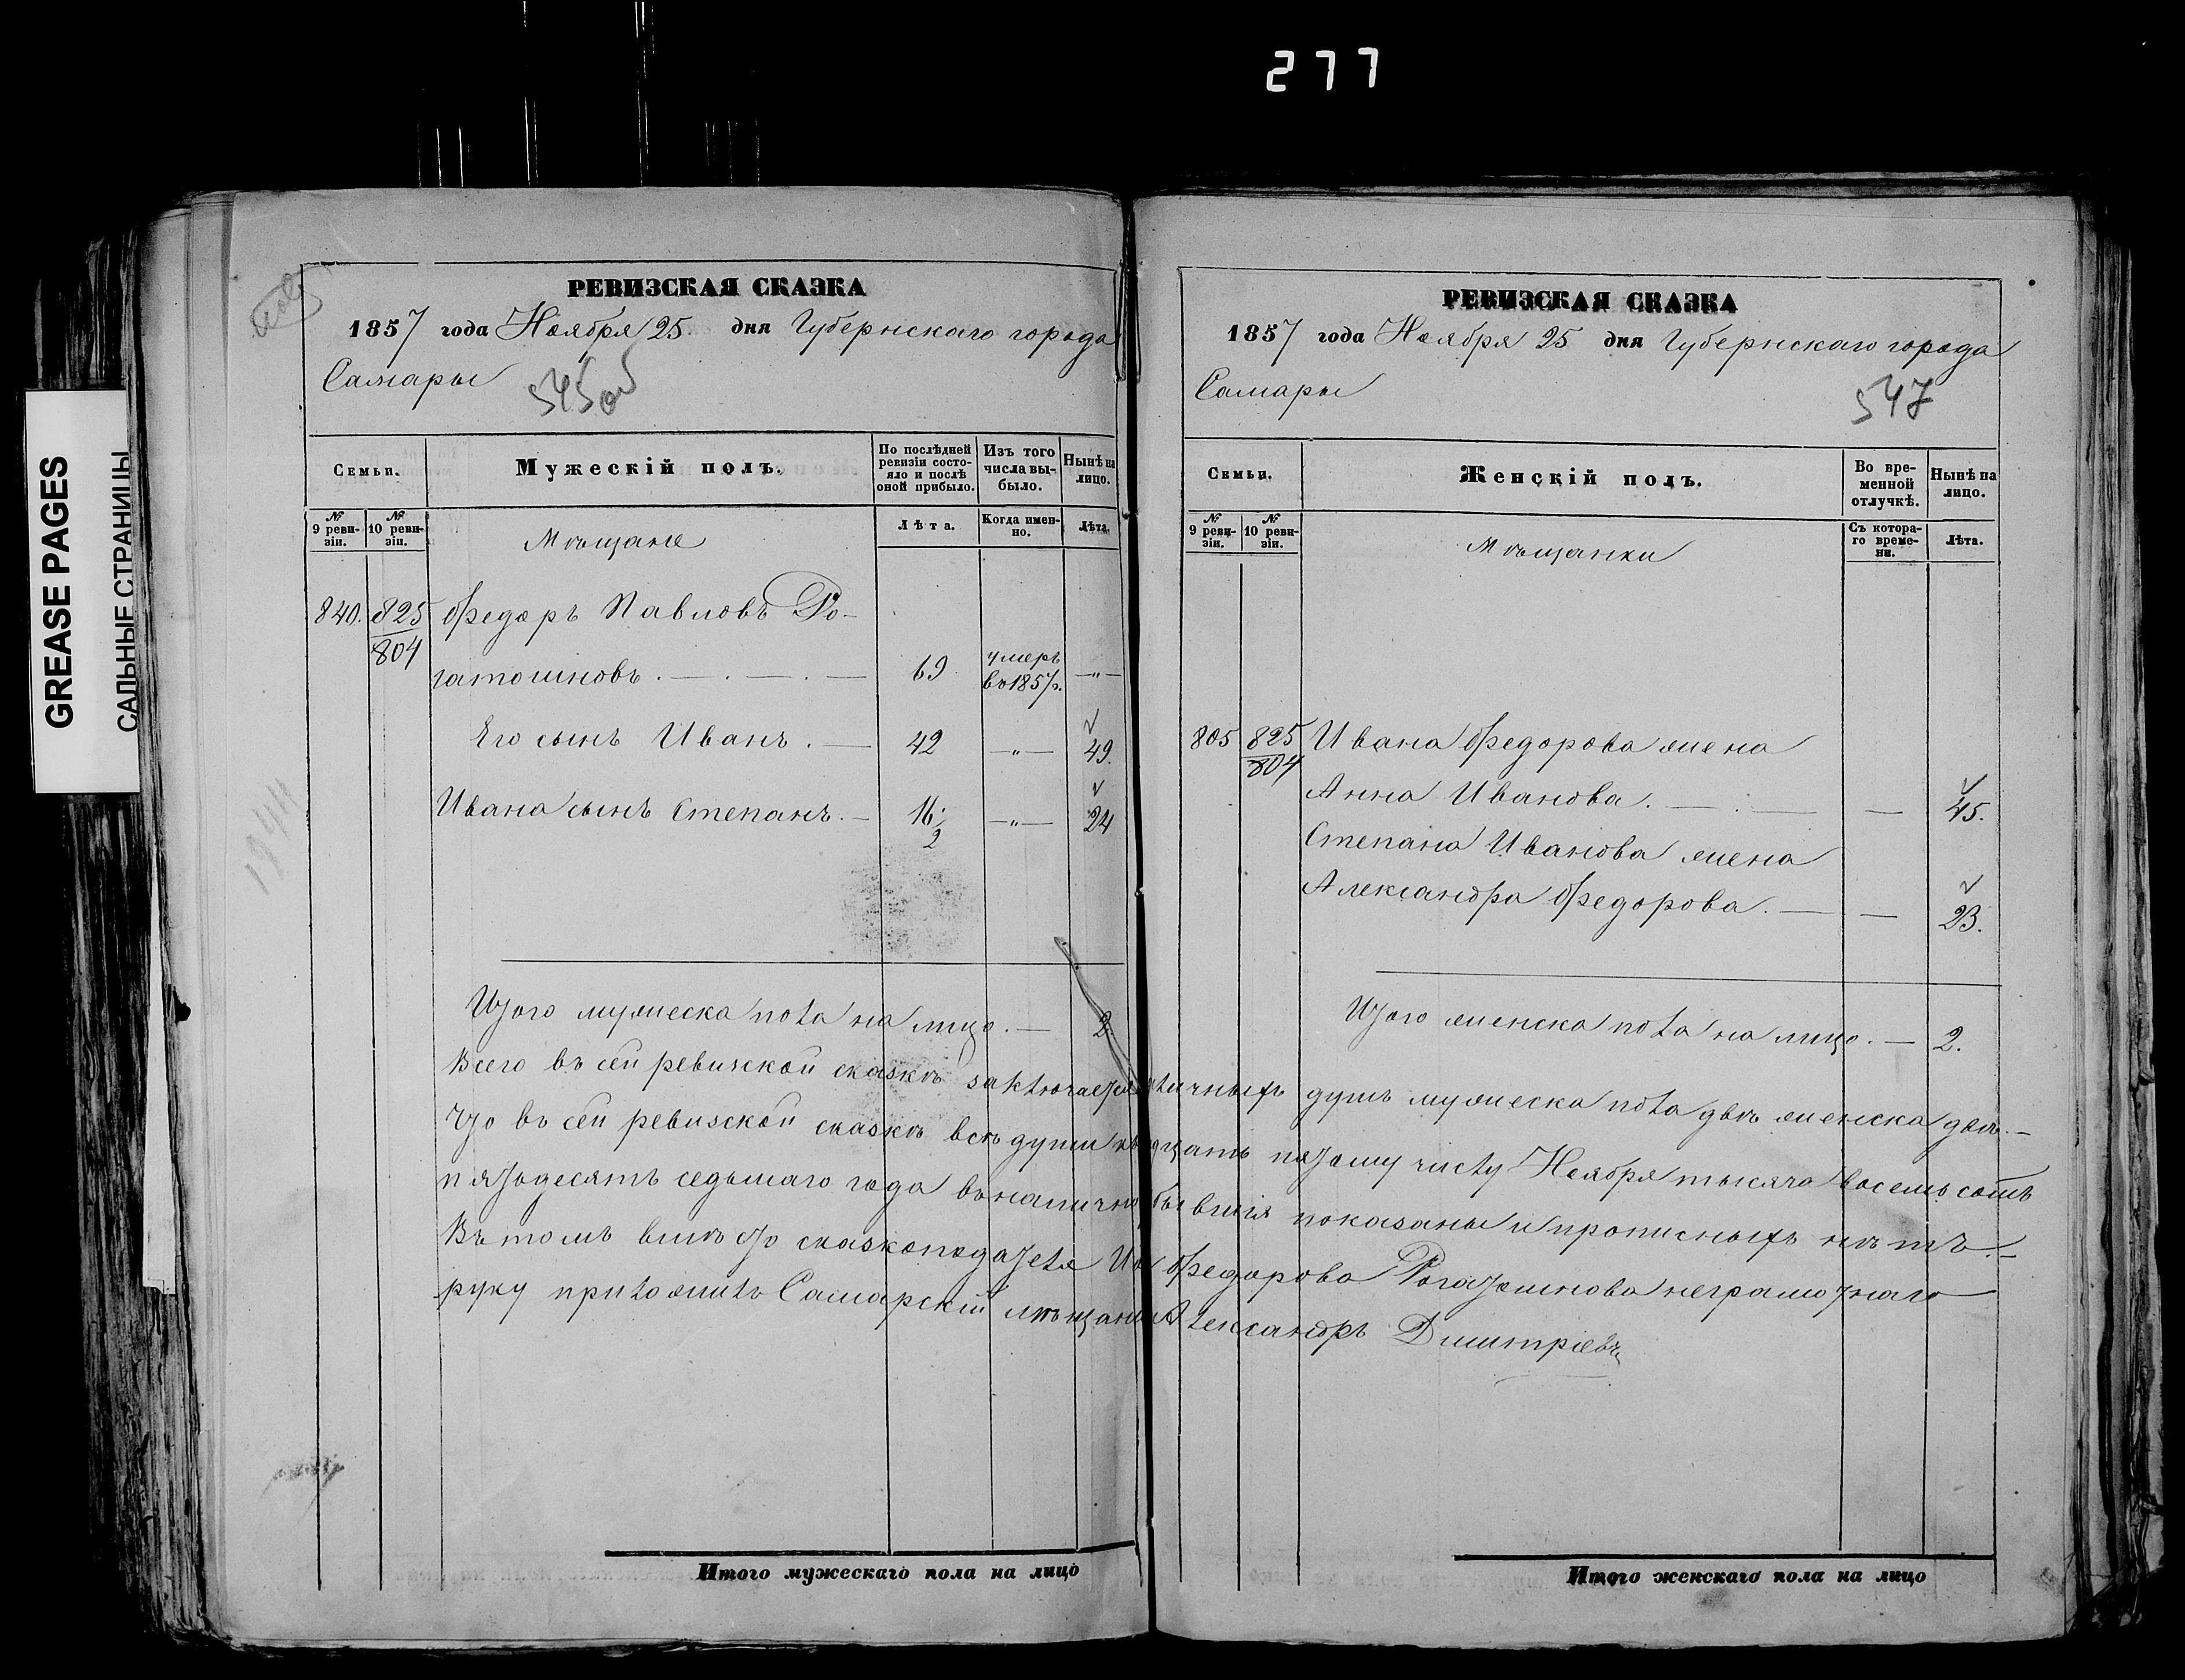 277
GREASE PAGES
САЛЬНЫЕ СТРАНИЦЫ
РЕВИЗСКАЯ СКАЗКА
1857 года Ноября 25 дня Губернскаго города
Самары
545об
Семьи.
Мужескій полъ.
По послѣдней ревизіи состояло и послѣ оной прибыло.
Изъ того числа выбыло.
Нынѣ на лицо.
№ 9 ревизіи.
№ 10 ревизіи.
Мѣщане
Лѣта.
Когда именно.
Лѣта.
840. 825 Федоръ Павловъ Ро-
804
гатошновъ . — . — . — 69 умеръ в 1857 г. —"—
Его сынъ Иванъ . — 42 —"— 49.
Ивана сынъ Степанъ. — 16 1/2 —"— 24
Итого мужеска пола на лицо. — 2
РЕВИЗСКАЯ СКАЗКА
1857 года Ноября 25 дня Губернскаго города
Самары
547
Семьи.
Женскій полъ.
Во временной отлучкѣ.
Нынѣ на лицо.
№ 9 ревизіи.
№ 10 ревизіи.
Мѣщанки
Съ котораго времени.
Лѣта.
805 825 Ивана Федорова жена
804
Анна Иванова. — — 45.
Степана Иванова жена
Александра Федорова. — — 23.
Итого женска пола на лицо. — 2.
Всего въ сей ревизской сказкѣ заключается личныхъ душъ мужеска пола двѣ женска двѣ. —
Что въ сей ревизской сказкѣ всѣ души къ пятому числу Ноября тысяча восемь сотъ
пятьдесятъ седьмаго года въ наличнобывшія показаны и прописныхъ нѣтъ. —
Въ томъ вмѣсто сказкоподателя Ив Федорова Рогатошнова неграмотнаго
руку приложилъ Самарскій мѣщани Александръ Дмитріевъ
Итого мужескаго пола на лицо
Итого женскаго пола на лицо